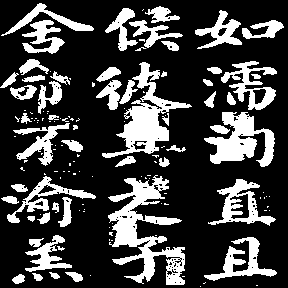 如濡洵直且
侯彼其之子
舍命不渝羔